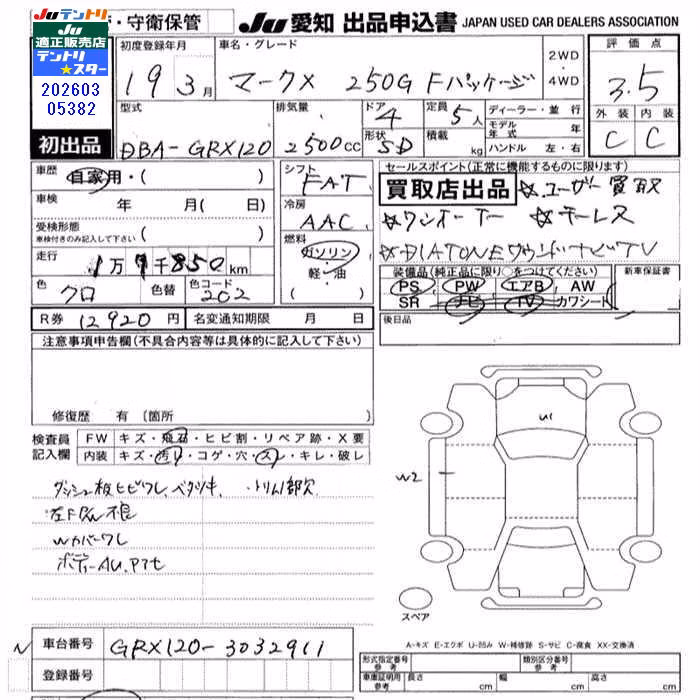 Juテントリ
適正販売店
テントリ
★スター
202603
05382
・守衛保管
Ju 愛知 出品申込書 JAPAN USED CAR DEALERS ASSOCIATION
初出品
初度登録年月
19年3月
車名・グレード
マークX 250G Fパッケージ
2WD
・
4WD
評価点
3.5
外装 内装
C C
型式
DBA-GRX120
排気量
2500cc
ドア
4
形状
SD
定員
5人
積載
kg
ディーラー・並行
モデル年式 年
ハンドル 左・右
車歴
自家用・( )
車検 年 月( 日)
受検形態
車検付きのみ記入して下さい ( )
走行
1万9千850km
色
クロ
色替
色コード
202
シフト
FAT
冷房
AAC
燃料
ガソリン
・
軽・油
( )
セールスポイント(正常に機能するものに限ります)
買取店出品 ☆ユーザー買取
☆ワンオーナー ☆モーレス
☆DIATONEサウンドナビTV
装備品(純正品に限り○をつけてください)
PS PW エアB AW
SR ナビ TV カワシート
新車保証書
後日品
R券 12920円 名変通知期限 月 日
注意事項申告欄(不具合内容等は具体的に記入して下さい)
修復歴 有 〔箇所
検査員
記入欄
FW キズ・飛石・ヒビ割・リペア跡・X要
内装 キズ・汚れ・コゲ・穴・スレ・キレ・破レ
ダッシュ板ヒビワレ、ベタツキ、トリム部欠
不良
Wカバーワレ
ボディーAU、Pアセ
U1
W2
スペア
A-キズ E-エクボ U-凹み W-補修跡 S-サビ C-腐食 XX-交換済
N
車台番号 GRX120-3032911
登録番号
形式指定番号
参考
類別区分番号
参考
車庫証明用
参考
長さ cm 幅 cm 高さ cm